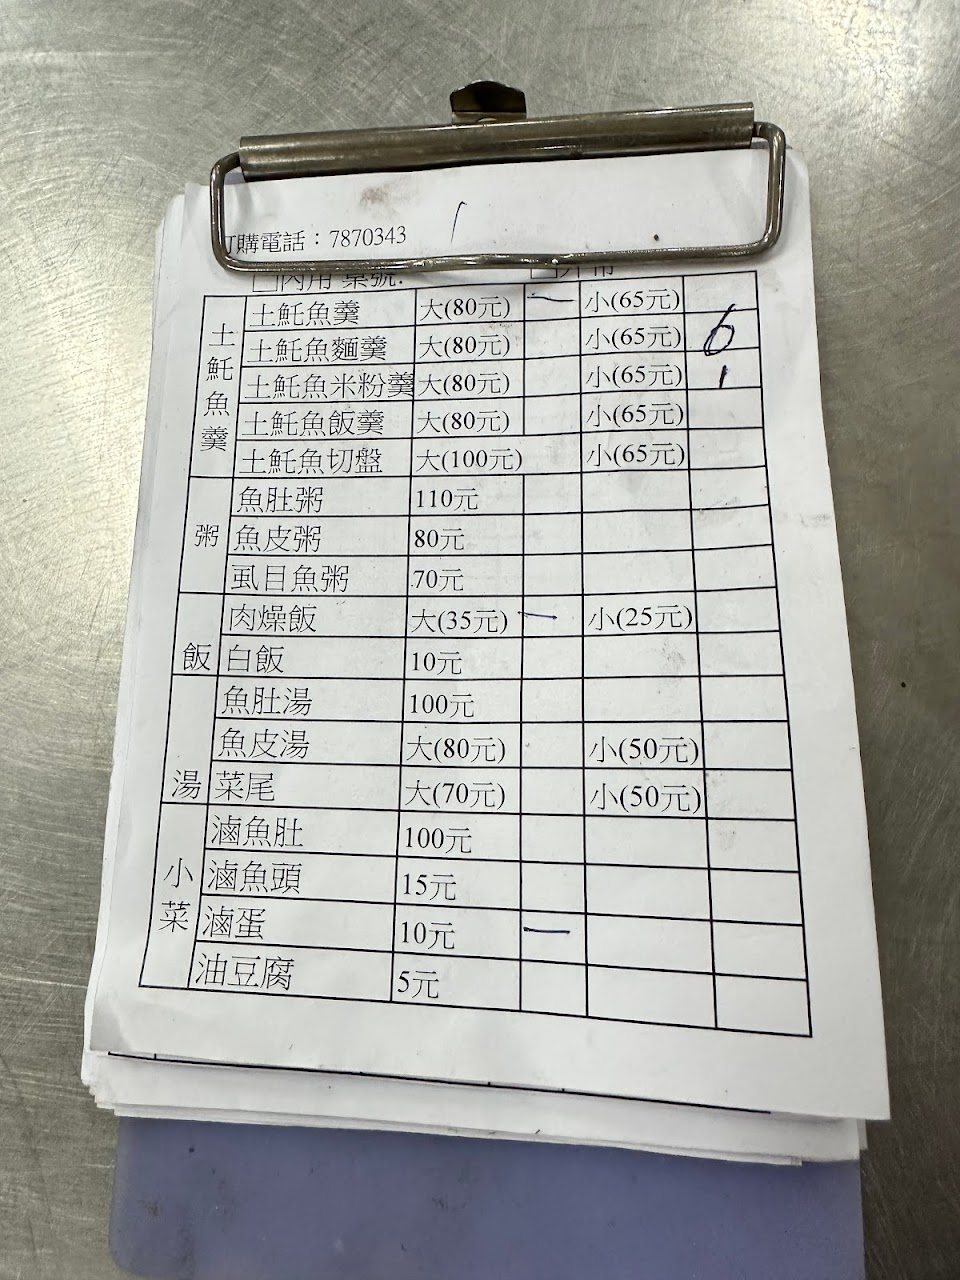 訂購電話：7870343
□內用 桌號:　□外帶
土魠魚羹
土魠魚羹 大(80元) 一 小(65元)
土魠魚麵羹 大(80元) 小(65元) 6
土魠魚米粉羹 大(80元) 小(65元) 1
土魠魚飯羹 大(80元) 小(65元)
土魠魚切盤 大(100元) 小(65元)
粥
魚肚粥 110元
魚皮粥 80元
虱目魚粥 70元
飯
肉燥飯 大(35元) 一 小(25元)
白飯 10元
湯
魚肚湯 100元
魚皮湯 大(80元) 小(50元)
菜尾 大(70元) 小(50元)
小菜
滷魚肚 100元
滷魚頭 15元
滷蛋 10元 一
油豆腐 5元